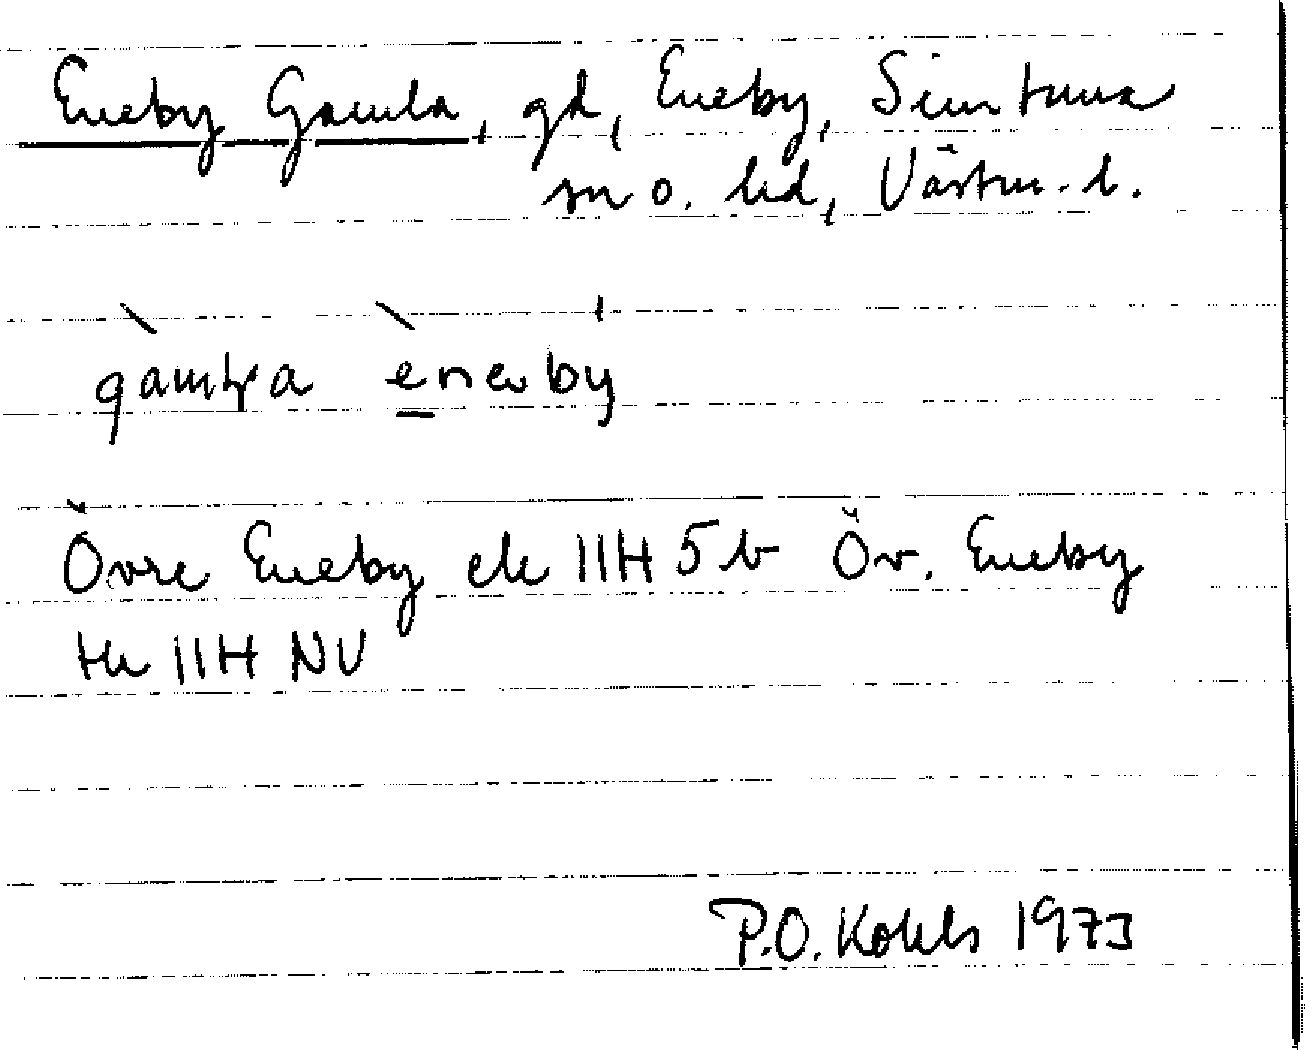 Eneby Gamla, gd, Eneby, Simtuna
sn o. hd, Västm. l.
gàmḷa èneby
Övre Eneby ek 11H 5b Öv. Eneby
tk 11H NV
P.O. Kohls 1973